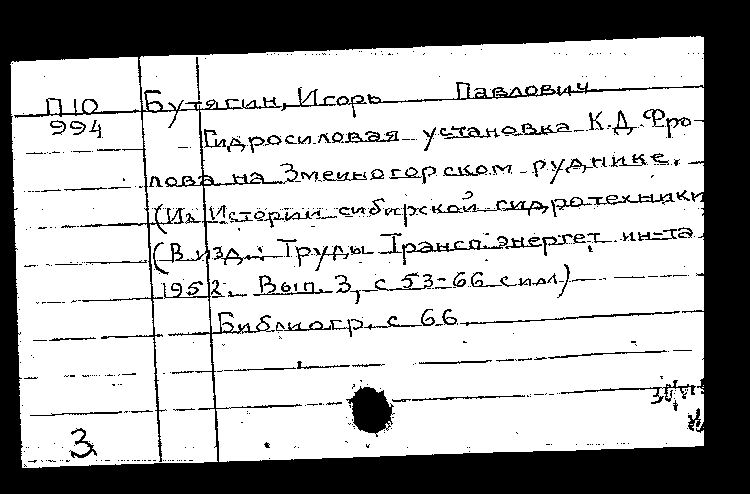 П10 Бутягин, Игорь Павлович
994 Гидросиловая установка К.Д. Фро-
лова на Змеиногорском руднике.
(Из Истории сибирской гидротехники)
(В изд.: Труды Трансп. энергет. ин-та.
1952. Вып. 3, с 53-66 с илл)
Библиогр. с 66.
3